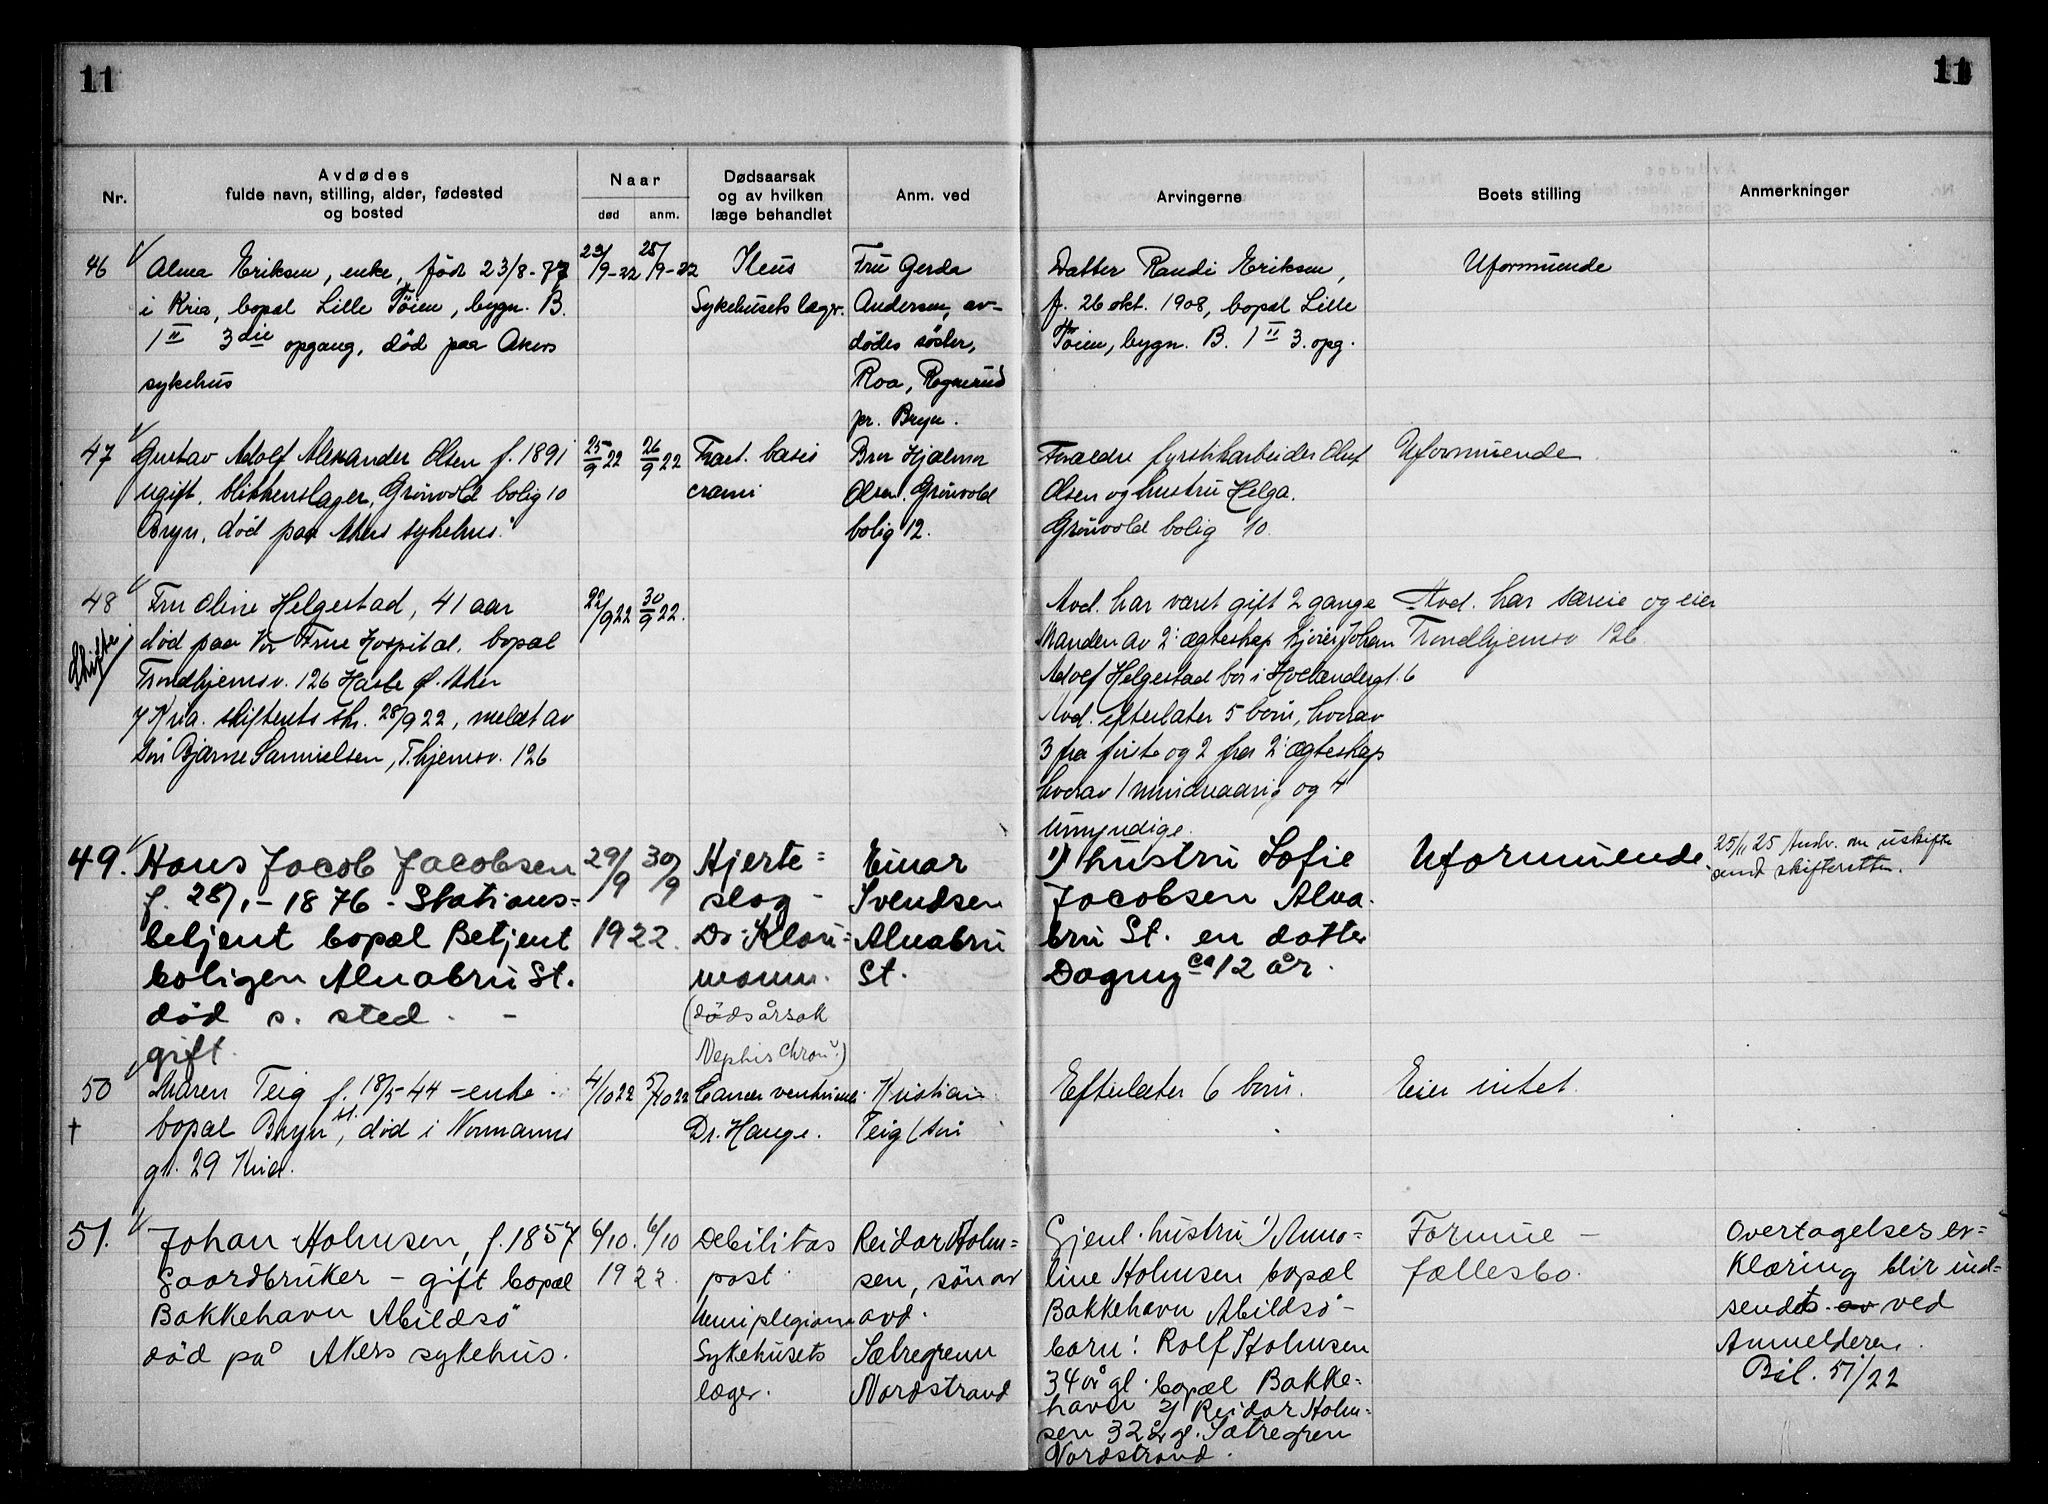 11
11
Nr.
Avdødes
fulde navn, stilling, alder, fødested
og bosted
Naar
død
anm.
Dødsaarsak
og av hvilken
læge behandlet
Anm. ved
Arvingerne
Boets stilling
Anmerkninger
46
Alma Eriksen, enke, født 23/8-77
i Kria, bopæl Lille Töien, bygn. B.
1 II 3die opgang, död paa Akers
sykehus
23/9-22
25/9-22
Ileus
Sykehusets læger.
Fru Gerda
Andersen, av-
dödes söster,
Roa, Rognerud
pr. Bryn.
Datter Randi Eriksen,
f. 26 okt. 1908, bopæl Lille
Töien, bygn. B. 1 II 3. opg.
Uformuende
47
Gustav Adolf Alexander Olsen f. 1891
ugift, blikkenslager, Grönvold bolig 10
Bryn, död paa Akers sykehus.
25/9 22
26/9 22
Fract. basis
cranii
Bror Hjalmar
Olsen. Grönvold
bolig 12.
Forældre fyrstikarbeider Oluf
Olsen og hustru Helga.
Grönvold bolig 10.
Uformuende
48
Skifte
Fru Oline Helgestad, 41 aar
død paa Vor Frue Hospital. bopæl
Trondhjemsv. 126 Hasle Ø. Aker
Kria. skifterets skr. 28/9 22, meldt av
sön Bjarne Samuelsen, T.hjemsv. 126
22/9 22
30/9 22.
Avd. har været gift 2 gange
Manden av 2: ægteskap Johan
Adolf Helgestad bor i 6
Avd. efterlater 5 born, hvorav
3 fra förste og 2 fra 2: ægteskap
hvorav 1 mindreaarig og 4
Umyndige.
Avd. har særeie og eier
Trondhjemsv 126
49.
Hans Jacob Jacobsen
f. 28/1-1876 - Stations=
betjent bopæl Betjent
boligen Alnabru St.
død s. sted. -
gift.
29/9
30/9
1922.
Hjerte=
slag -
Dr. Klau=
mann.
(dödsårsak
Nephris chron.)
Einar
Svendsen
Alnabru
St.
1) hustru Sofie
Jacobsen Alna-
bru St. en datter
Dagny ca 12 år.
Uformuende.
25/11 25 Andr. om uskifte
send skifteretten.
50
†
Maren Teig f. 18/5-44 - enke
bopæl Bryn st., död i Normanns
gt. 29 Kria.
4/10 22
5/10 22
Cancer ventriculi
Dr. Hauge.
Kristian
Teig (sön
Efterlater 6 born.
Eier intet.
51.
Johan Holmsen, f. 1857
Gaardbruker - gift bopæl
Bakkehavn Abildsö
död på Akers sykehus.
6/10.
6/10
1922.
Debilitas
post
hemiplegiam
Sykehusets
læger.
Reidar Holm=
sen, sön av
avd.
Sætregrenn
Nordstrand
Gjenl. hustru 1) Anno=
line Holmsen bopæl
Bakkehavn Abildsö -
barn: Rolf Holmsen
34 år gl. bopæl Bakke=
havn 2) Reidar Holm=
sen 32 år gl. Sætregren
Nordstrand.
Formue -
fællesbo.
Overtagelseser=
klæring blir ind-
sendt av ved
Anmelderen.
Bil. 51/22